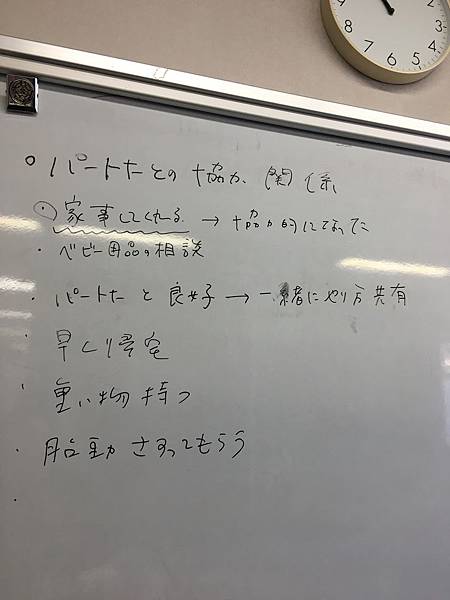 パートナーとの協力関係
家事してくれる → 協力的になった
・ベビー用品の相談
・パートナーと良好 → 一緒にやり方共有
早く帰宅
重い物持つ
・胎動さすってもらう
10 9 8 7 6 5 4 3